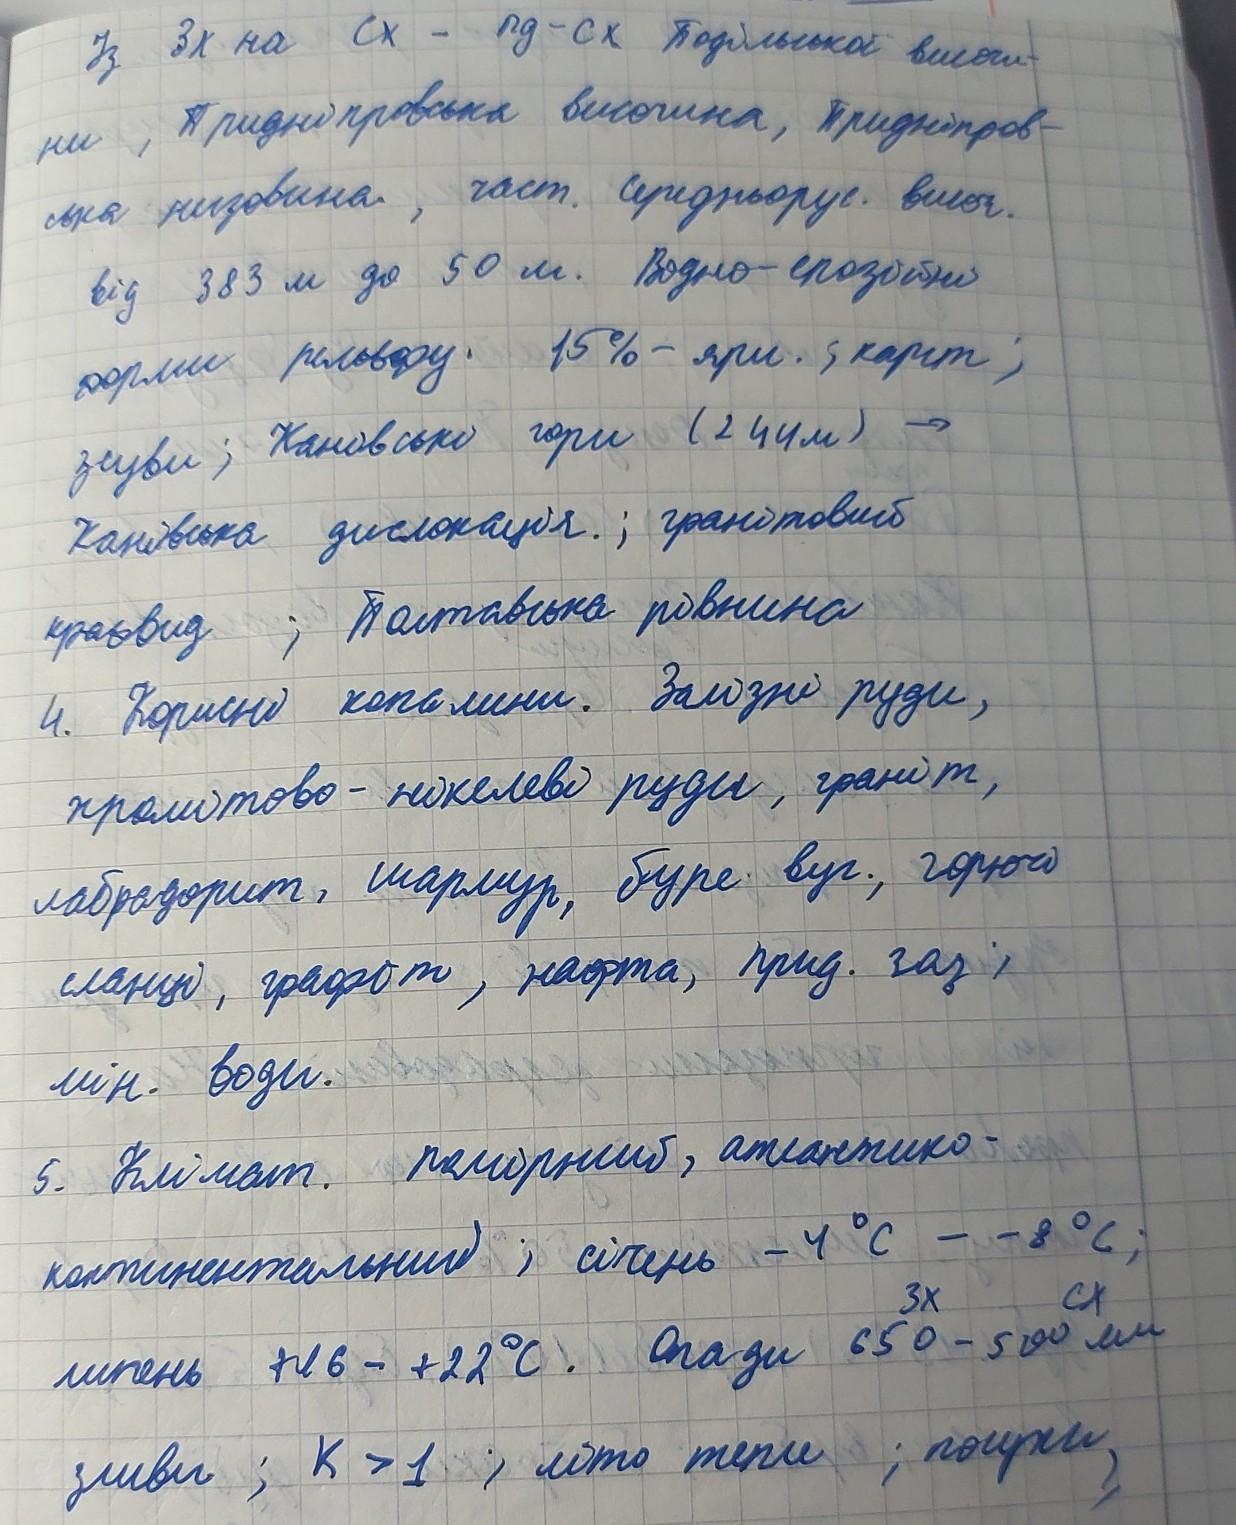 Із Зх на Сх - Пд-Сх Подільської височи-
ни, Придніпровська височина, Придніпров-
ська низовина., част. Середньорус. височ.
від 383 м до 50 м. Водно-ерозійні
форми рельєфу. 15% - яри.; карст;
зсуви; Канівські гори (244м) →
Канівська дислокація.; гранітовий
краєвид; Полтавська рівнина
4. Корисні копалини. Залізні руди,
хромітово-нікелеві руди, граніт,
лабрадорит, мармур, буре вуг., горючі
сланці, графіт, нафта, прид. газ;
мін. води.
5. Клімат. помірний, атлантико-
континентальний; січень -4°C - -8°C;
Зх Сх
липень +16 - +22°C. Опади 650 - 500 мм
зливи; K > 1; літо тепле; посухи,